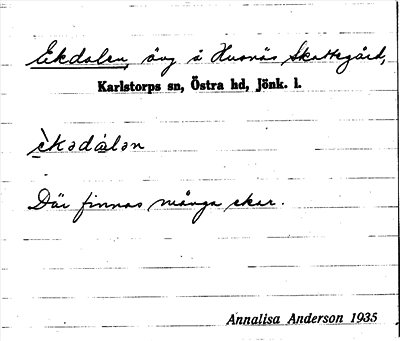 Ekdalen, äng å Husnäs Skattegård,
Karlstorps sn, Östra hd, Jönk. l.
èkədàlən
Där finnas många ekar.
Annalisa Anderson 1935